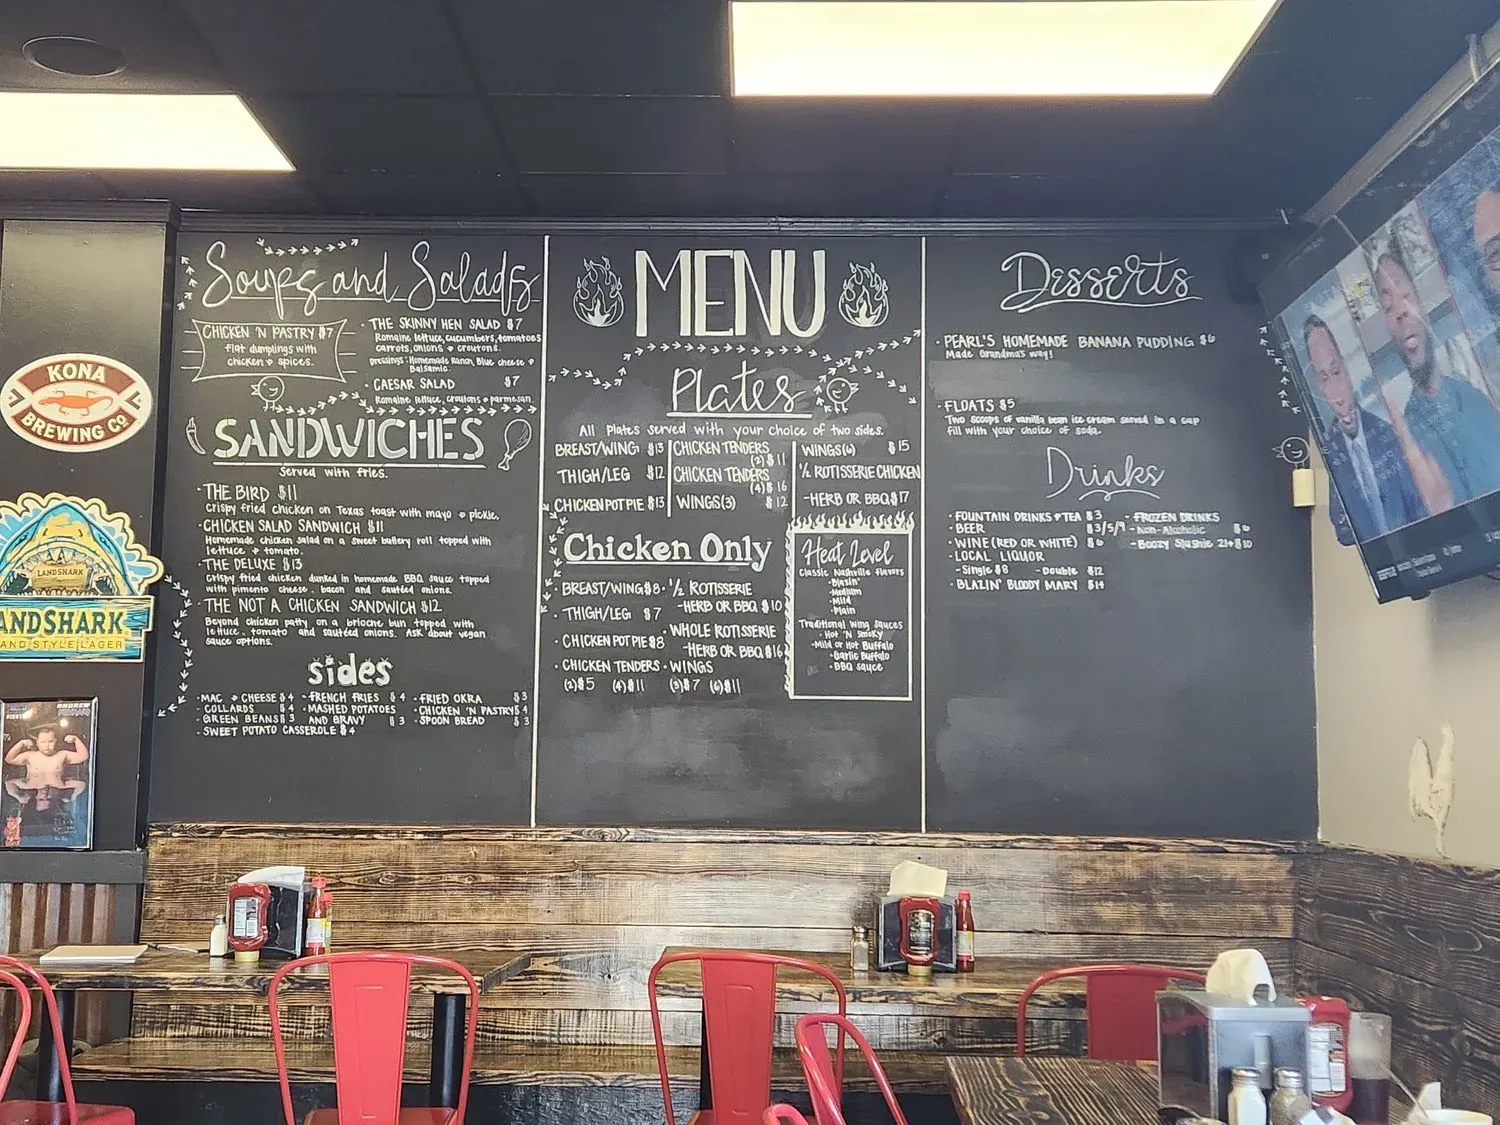 KONA
BREWING CO
LANDSHARK
LANDSHARK
Soups and Salads
CHICKEN 'N PASTRY $7
flat dumplings with
chicken + spices.
· THE SKINNY HEN SALAD $7
Romaine lettuce, cucumbers, tomatoes
carrots, onions + croutons.
Dressings: Homemade Ranch, Blue cheese +
Balsamic.
· CAESAR SALAD $7
Romaine lettuce, croutons + parmesan
SANDWICHES
Served with fries.
· THE BIRD $11
Crispy fried chicken on Texas toast with mayo + pickle.
· CHICKEN SALAD SANDWICH $11
Homemade chicken salad on a sweet buttery roll topped with
lettuce + tomato.
· THE DELUXE $13
Crispy fried chicken dunked in homemade BBQ sauce topped
with pimento cheese, bacon and sautéed onions.
· THE NOT A CHICKEN SANDWICH $12
Beyond chicken patty on a brioche bun topped with
lettuce, tomato and sautéed onions. Ask about vegan
sauce options.
sides
· MAC + CHEESE $4
· COLLARDS $4
· GREEN BEANS $3
· SWEET POTATO CASSEROLE $4
· FRENCH FRIES $4
· MASHED POTATOES
AND GRAVY $3
· FRIED OKRA $3
· CHICKEN 'N PASTRY $4
· SPOON BREAD $3
MENU
Plates
All Plates served with your choice of two sides.
BREAST/WING $13
THIGH/LEG $12
CHICKEN POT PIE $13
CHICKEN TENDERS
(2) $11
CHICKEN TENDERS
(4) $16
WINGS(3) $12
WINGS(6) $15
½ ROTISSERIE CHICKEN
-HERB OR BBQ $17
Chicken Only
· BREAST/WING $8
· THIGH/LEG $7
· CHICKEN POT PIE $8
· CHICKEN TENDERS
(2) $5 (4) $11
· ½ ROTISSERIE
-HERB OR BBQ $10
· WHOLE ROTISSERIE
-HERB OR BBQ $16
· WINGS
(3) $7 (6) $11
Heat Level
Classic Nashville flavors
- Blazin'
- Medium
- Mild
- Plain
Traditional wing sauces
- Hot 'N Smoky
- Mild or Hot Buffalo
- Garlic Buffalo
- BBQ sauce
Desserts
· PEARL'S HOMEMADE BANANA PUDDING $6
Made Grandma's way!
· FLOATS $5
Two scoops of vanilla bean ice cream served in a cup
fill with your choice of soda.
Drinks
· FOUNTAIN DRINKS + TEA $3
· BEER $3/5/7
· WINE (RED OR WHITE) $6
· LOCAL LIQUOR
- Single $8 - Double $12
· BLAZIN' BLOODY MARY $14
· FROZEN DRINKS
- Non-Alcoholic $6
- Boozy Slushie 21+ $10